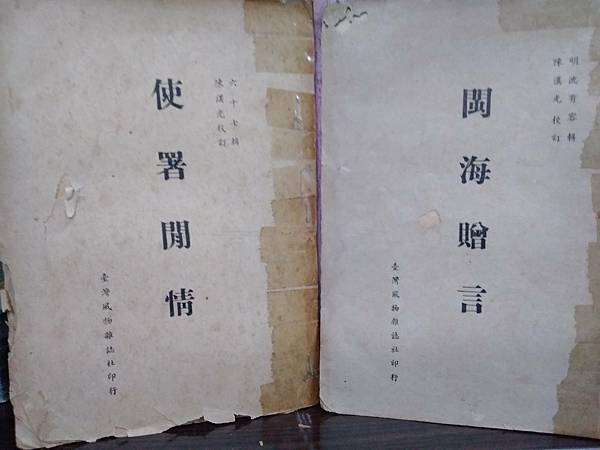 六十七輯
陳漢光校訂
使署閒情
臺灣風物雜誌社印行
明沈有容輯
陳漢光校訂
閩海贈言
臺灣風物雜誌社印行